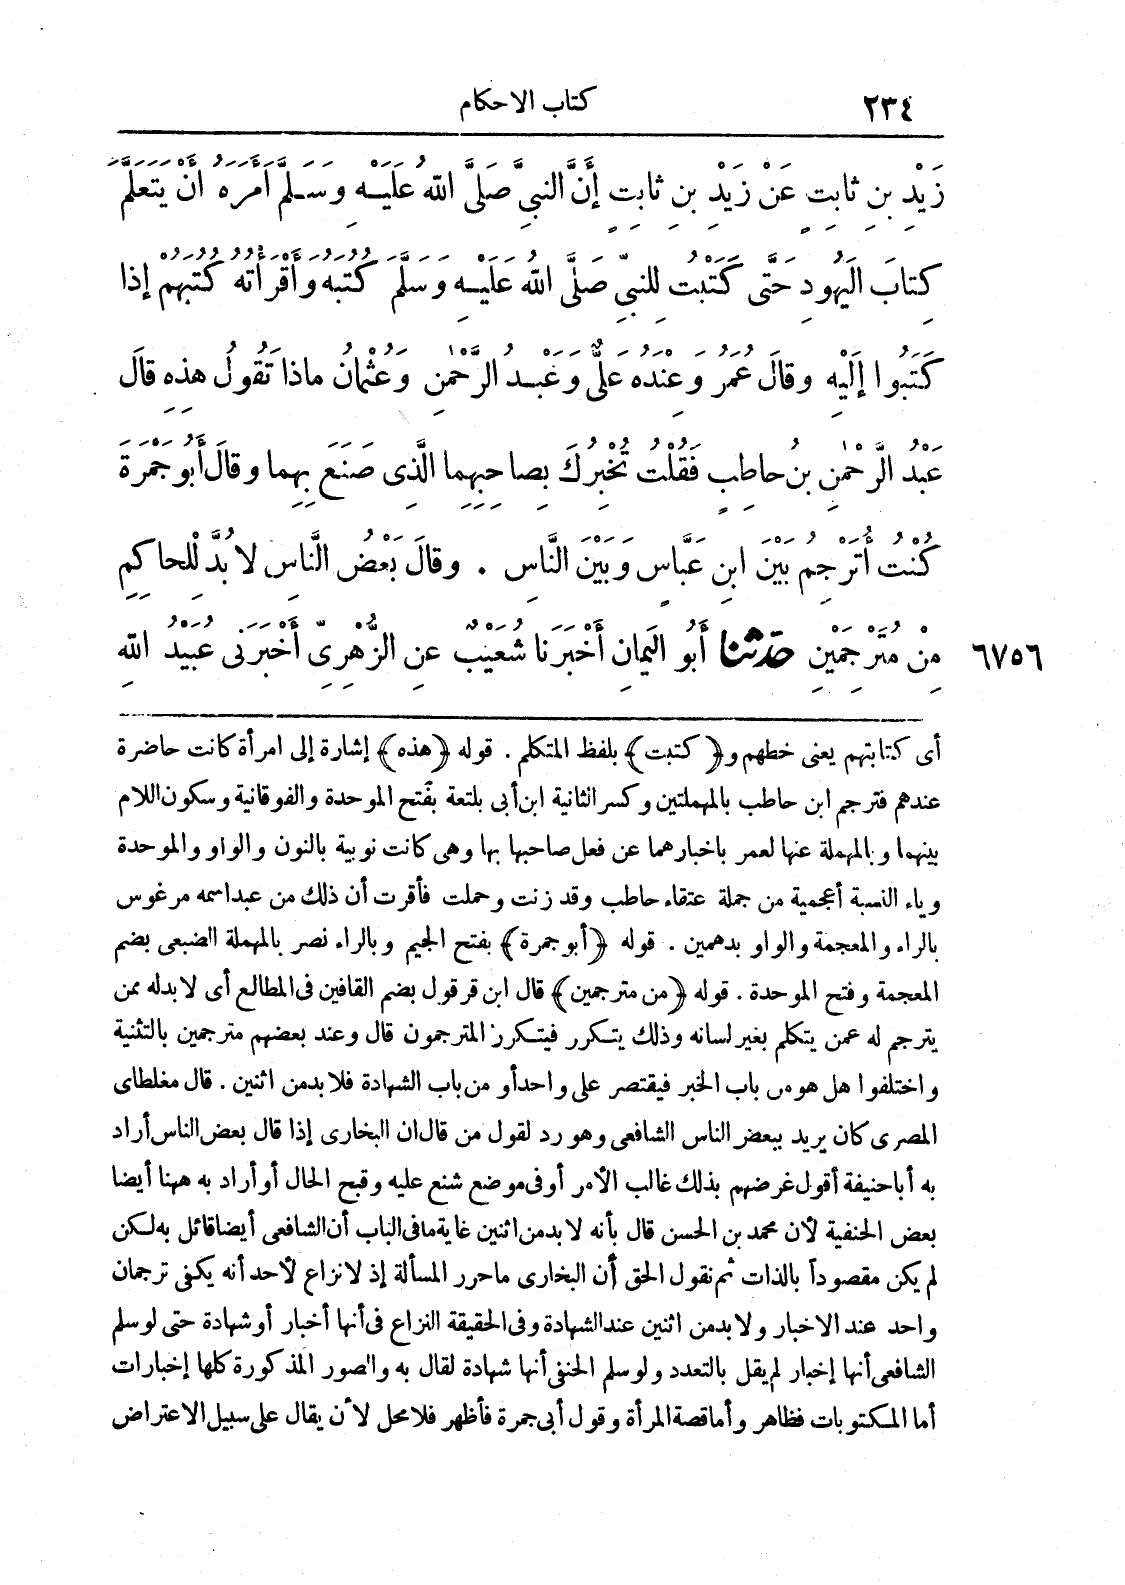 ٢٣٤ كتاب الاحكام
زَيْدِ بنِ ثابِتٍ عَنْ زَيْدِ بنِ ثابِتٍ إنَّ النبيَّ صَلَّى اللهُ عَلَيْهِ وسَلَّمَ أَمَرَهُ أنْ يَتَعَلَّمَ
كِتابَ اليَهُودِ حَتَّى كَتَبْتُ للنبيِّ صَلَّى اللهُ عَلَيْهِ وَسَلَّمَ كُتُبَهُ وأَقْرَأْتُهُ كُتُبَهُمْ إذا
كَتَبُوا إلَيْهِ وقالَ عُمَرُ وعِنْدَهُ عَلِيٌّ وعَبْدُ الرَّحْمٰنِ وَعُثْمانُ ماذا تَقُولُ هذِهِ قالَ
عَبْدُ الرَّحْمٰنِ بنُ حاطِبٍ فَقُلْتُ تُخْبِرُكَ بِصاحِبِهِما الَّذِى صَنَعَ بِهِما وقالَ أَبُو جَمْرَةَ
كُنْتُ أُتَرْجِمُ بَيْنَ ابنِ عَبَّاسٍ وَبَيْنَ النَّاسِ . وقالَ بَعْضُ النَّاسِ لا بُدَّ لِلْحاكِمِ
مِنْ مُتَرْجِمَيْنِ حَدّثنا أَبُو اليَمانِ أَخْبَرَنا شُعَيْبٌ عنِ الزُّهْرِيِّ أَخْبَرَنى عُبَيْدُ اللهِ ٦٧٥٦
أى كتابتهم يعنى خطهم و﴿كتبت﴾ بلفظ المتكلم. قوله ﴿هذه﴾ إشارة إلى امرأة كانت حاضرة
عندهم فترجم ابن حاطب بالمهملتين وكسر الثانية ابن أبى بلتعة بفتح الموحدة والفوقانية وسكون اللام
بينهما وبالمهملة عنها لعمر باخبارهما عن فعل صاحبها بها وهى كانت نوبية بالنون والواو والموحدة
وياء النسبة أعجمية من جملة عتقاء حاطب وقد زنت وحملت فأقرت أن ذلك من عبد اسمه مرغوس
بالراء والمعجمة والواو بدهمين. قوله ﴿أبو جمرة﴾ بفتح الجيم وبالراء نصر بالمهملة الضبعى بضم
المعجمة وفتح الموحدة. قوله ﴿من مترجمين﴾ قال ابن قرقول بضم القافين فى المطالع أى لا بد له ممن
يترجم له عمن يتكلم بغير لسانه وذلك يتكرر فيتكرر المترجمون قال وعند بعضهم مترجمين بالتثنية
واختلفوا هل هو من باب الخبر فيقتصر على واحد أو من باب الشهادة فلا بد من اثنين. قال مغلطاى
المصرى كان يريد ببعض الناس الشافعى وهو رد لقول من قال ان البخارى إذا قال بعض الناس أراد
به أبا حنيفة أقول غرضهم بذلك غالب الأمر أو فى موضع شنع عليه وقبح الحال أو أراد به ههنا أيضا
بعض الحنفية لأن محمد بن الحسن قال بأنه لا بد من اثنين غاية ما فى الباب أن الشافعى أيضا قائل به لكن
لم يكن مقصوداً بالذات ثم نقول الحق أن البخارى ما حرر المسألة إذ لا نزاع لأحد أنه يكفى ترجمان
واحد عند الاخبار ولا بد من اثنين عند الشهادة وفى الحقيقة النزاع فى أنها أخبار أو شهادة حتى لو سلم
الشافعى أنها إخبار لم يقل بالتعدد ولو سلم الحنفى أنها شهادة لقال به والصور المذكورة كلها إخبارات
أما المكتوبات فظاهر وأما قصة المرأة وقول أبى جمرة فأظهر فلا محل لأن يقال على سبيل الاعتراض